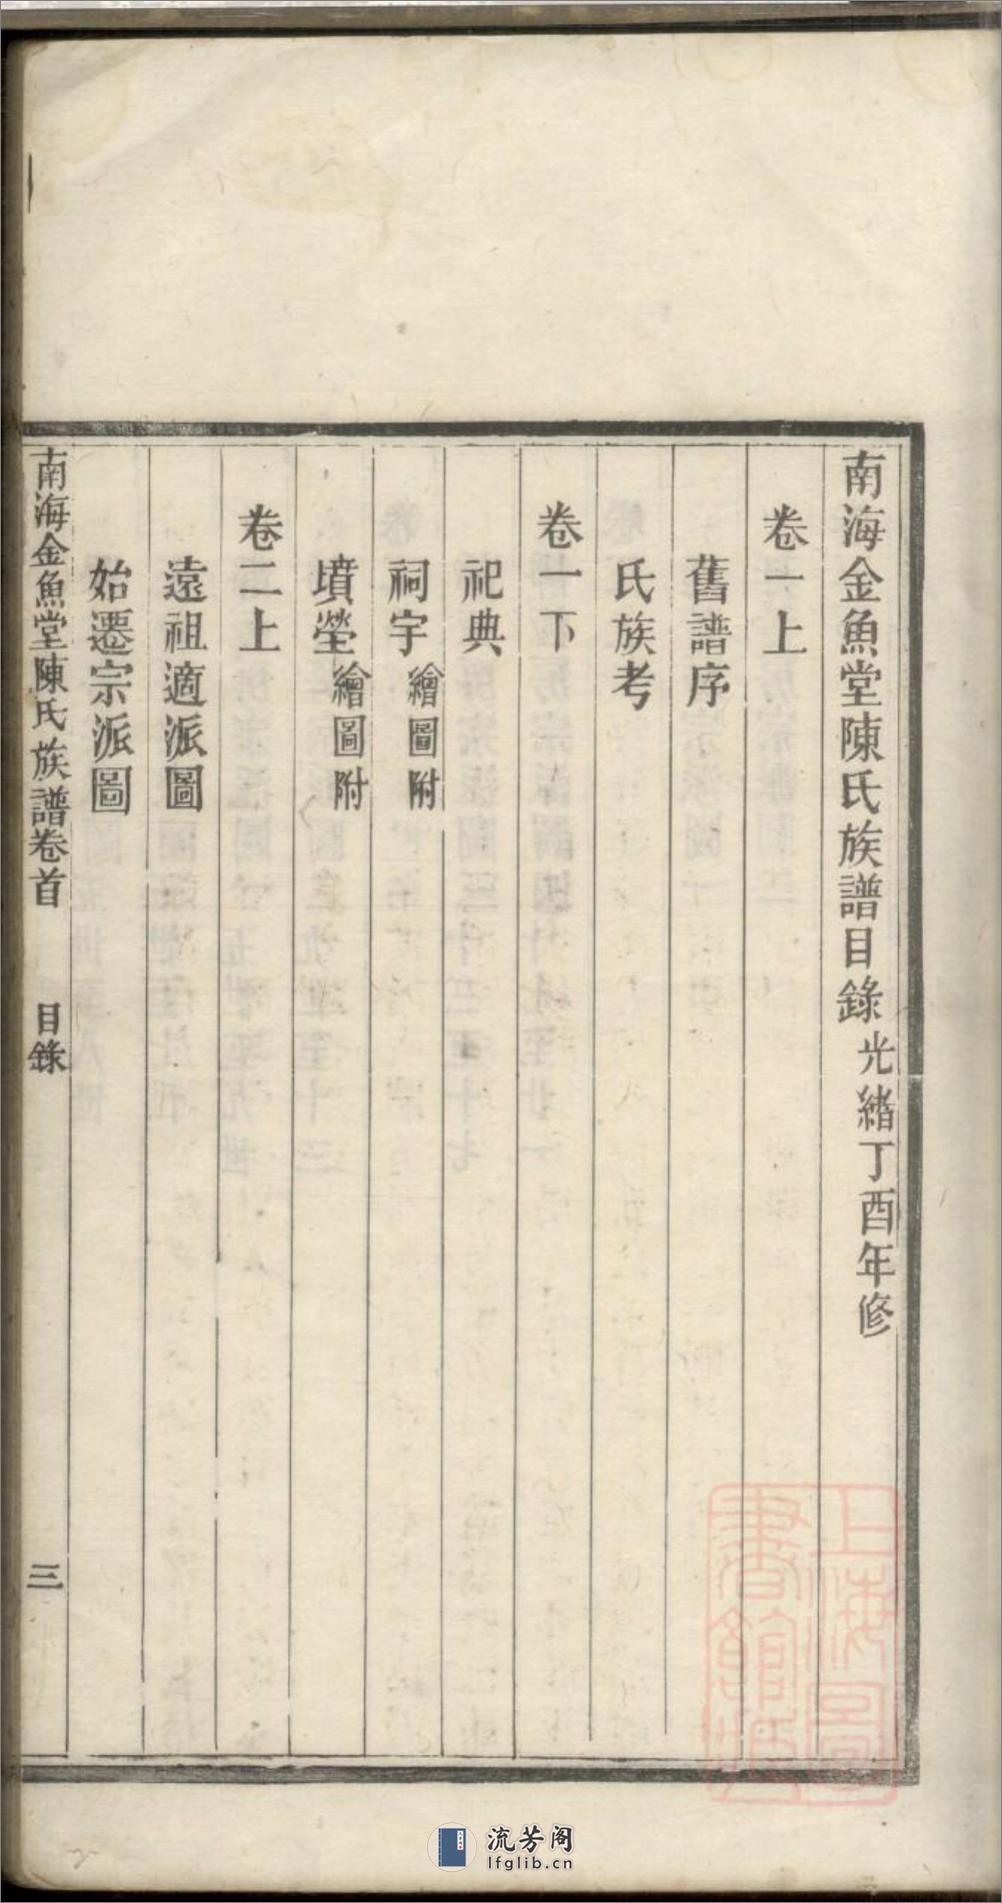 南海金魚堂陳氏族譜目錄 光緒丁酉年修
卷一上
舊譜序
氏族考
卷一下
祀典
祠宇 繪圖附
墳塋 繪圖附
卷二上
遠祖適派圖
始遷宗派圖
南海金魚堂陳氏族譜卷首 目錄 三
上海圖
書館藏
流芳阁
lfglib.cn